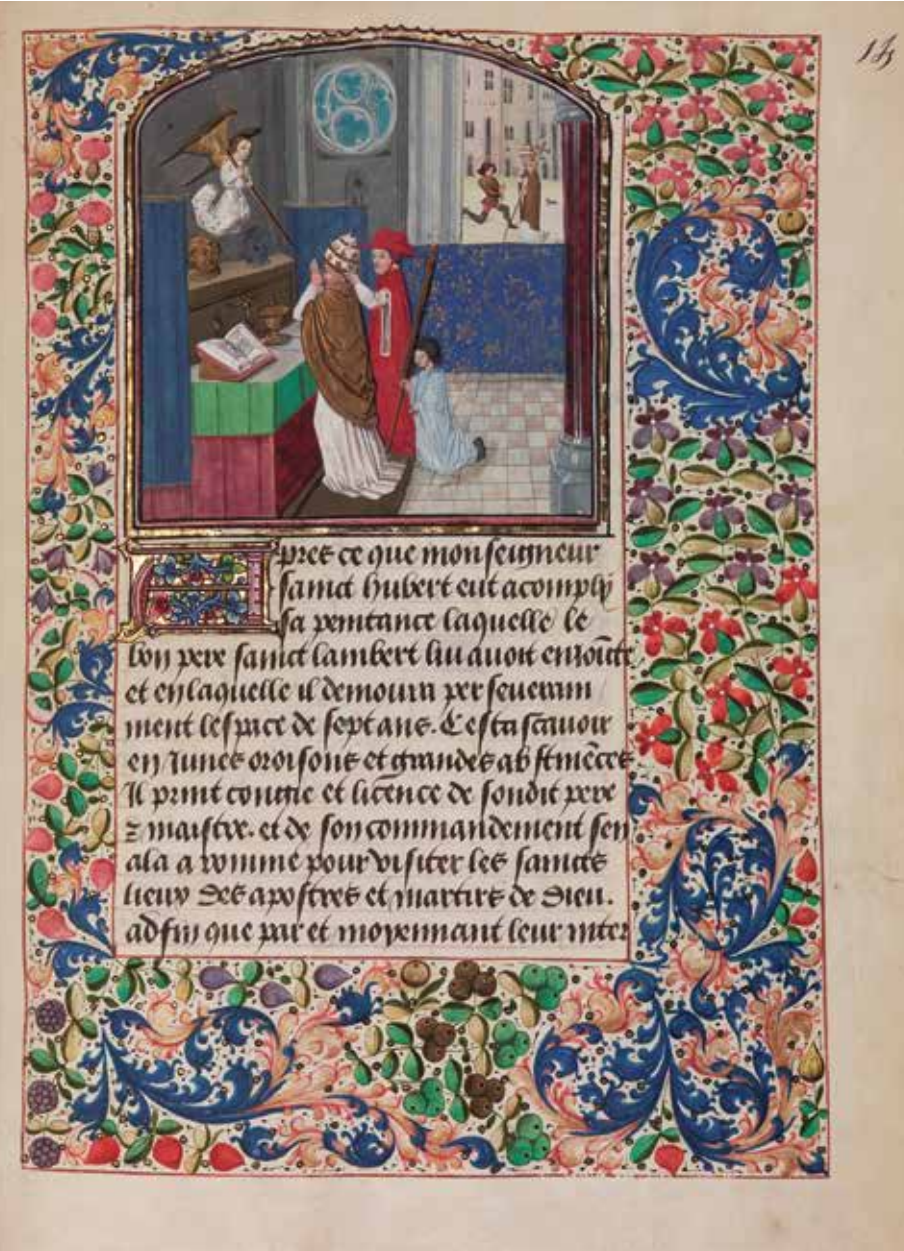 13
Apres ce que monseigneur
sainct hubert eut acomply
sa penitance laquelle le
bon pere sainct lambert luj auoit enioīcte
et en laquelle il demoura perseueram
ment lespace de sept ans. Cestascauoir
en Junes oroisons et grandes abstinēces
Il print congie et licence de sondit pere
⁊ maistre. et de son commandement sen
ala a romme pour visiter les saincts
lieux des apostres et martirs de dieu.
adfin que par et moyennant leur inter